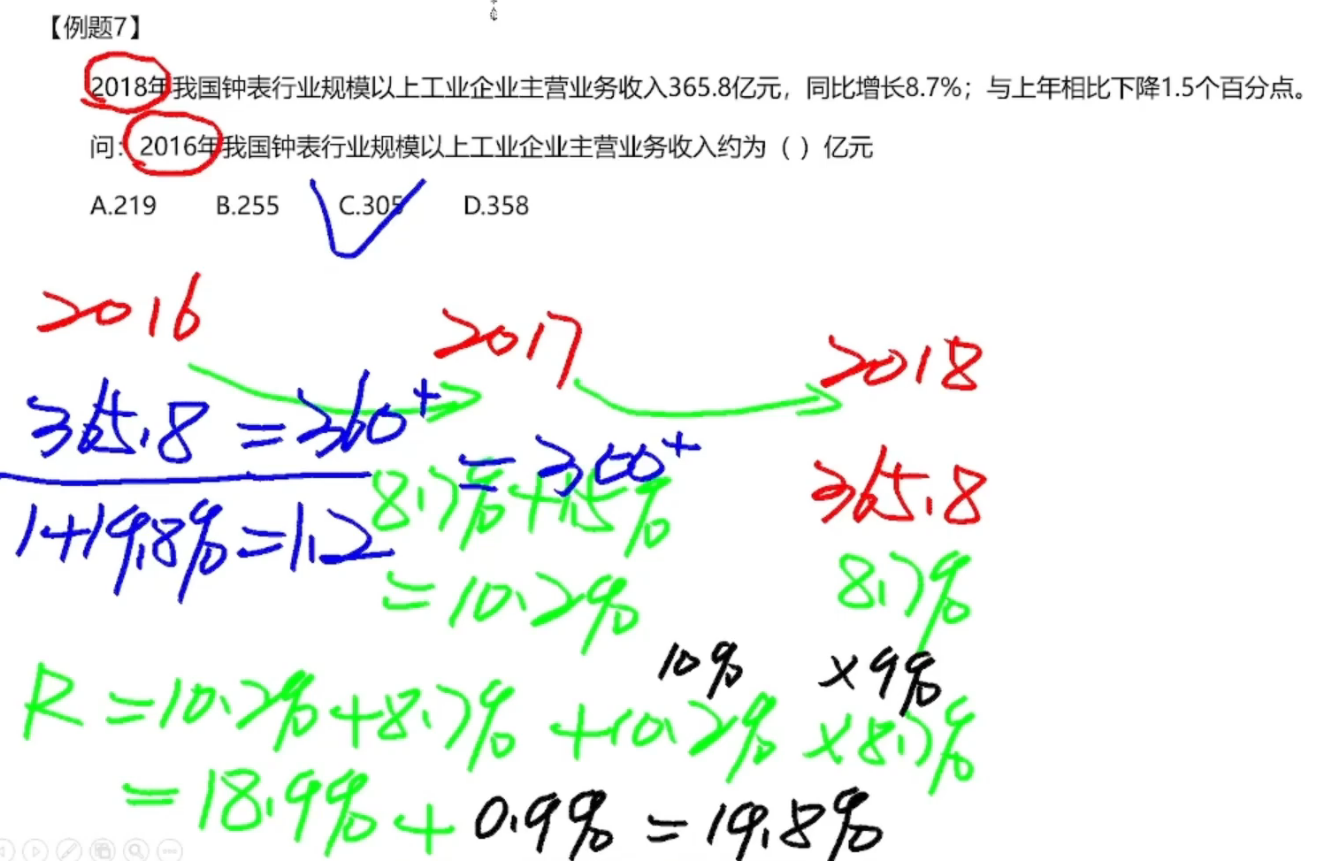 【例题7】
2018年我国钟表行业规模以上工业企业主营业务收入365.8亿元，同比增长8.7%；与上年相比下降1.5个百分点。
问：2016年我国钟表行业规模以上工业企业主营业务收入约为（ ）亿元
A.219 B.255 C.305 D.358
2016 2017 2018
365.8 = 360+ = 300+ 365.8
1+19.8% = 1.2 8.7%+1.5% 8.7%
= 10.2%
10% ×9%
R = 10.2% + 8.7% + 10.2% × 8.7%
= 18.9% + 0.9% = 19.8%